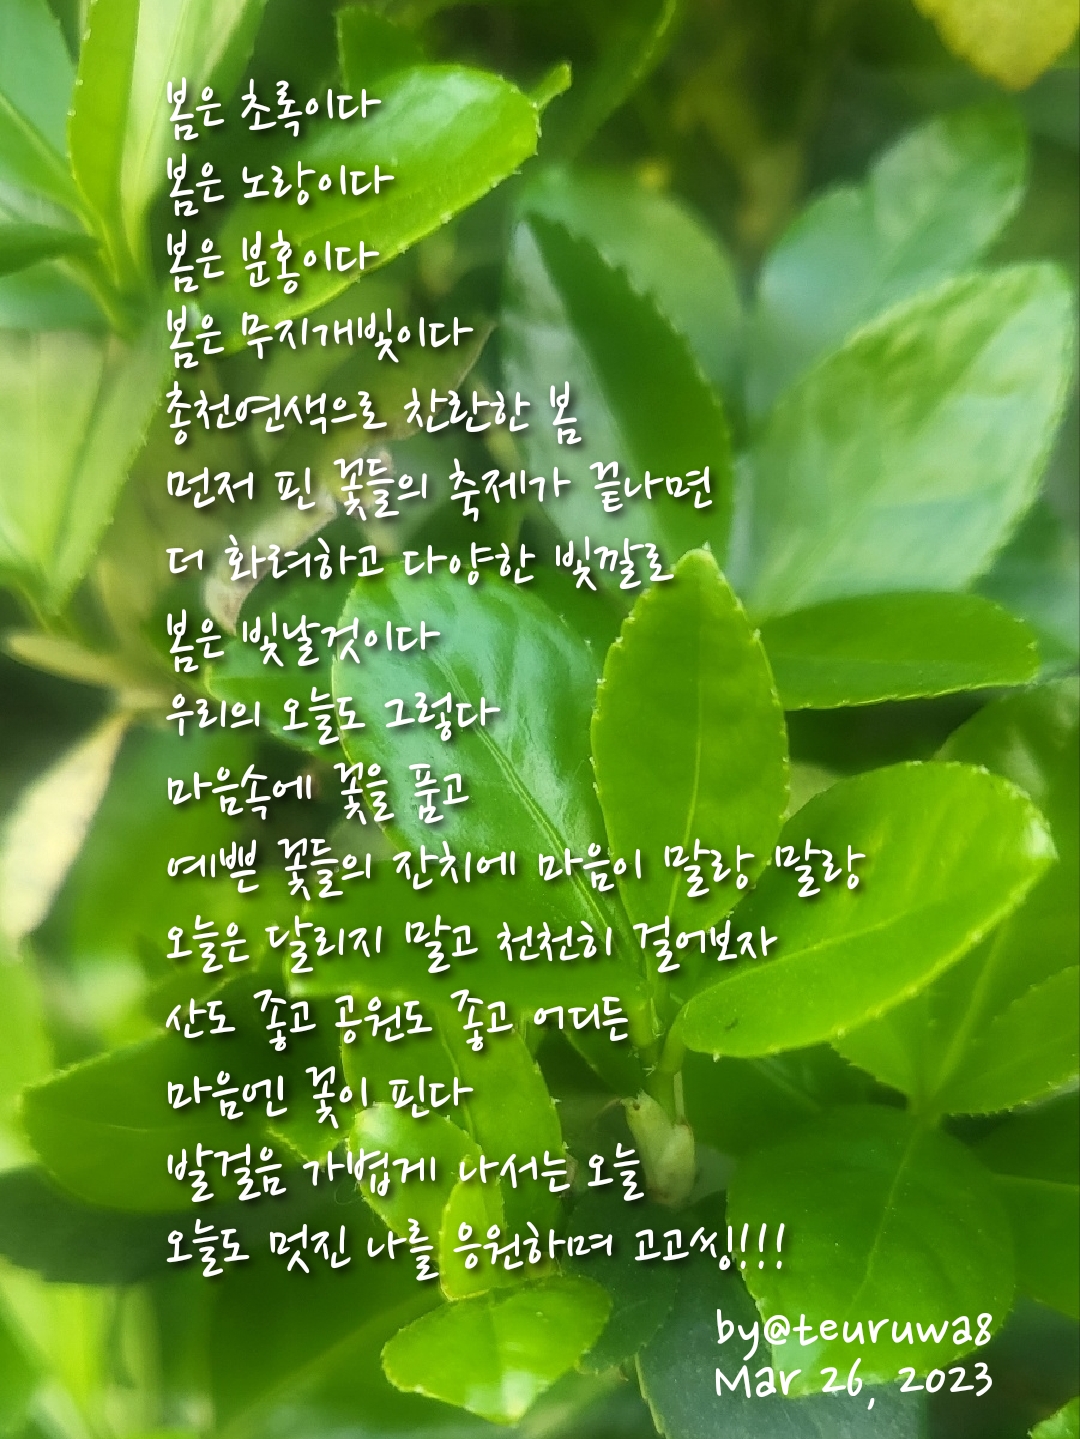 봄은 초록이다
봄은 노랑이다
봄은 분홍이다
봄은 무지개빛이다
총천연색으로 찬란한 봄
먼저 핀 꽃들의 축제가 끝나면
더 화려하고 다양한 빛깔로
봄은 빛날것이다
우리의 오늘도 그렇다
마음속에 꽃을 품고
예쁜 꽃들의 잔치에 마음이 말랑 말랑
오늘은 달리지 말고 천천히 걸어보자
산도 좋고 공원도 좋고 어디든
마음엔 꽃이 핀다
발걸음 가볍게 나서는 오늘
오늘도 멋진 나를 응원하며 고고씽!!!
by@teuruwa8
Mar 26, 2023